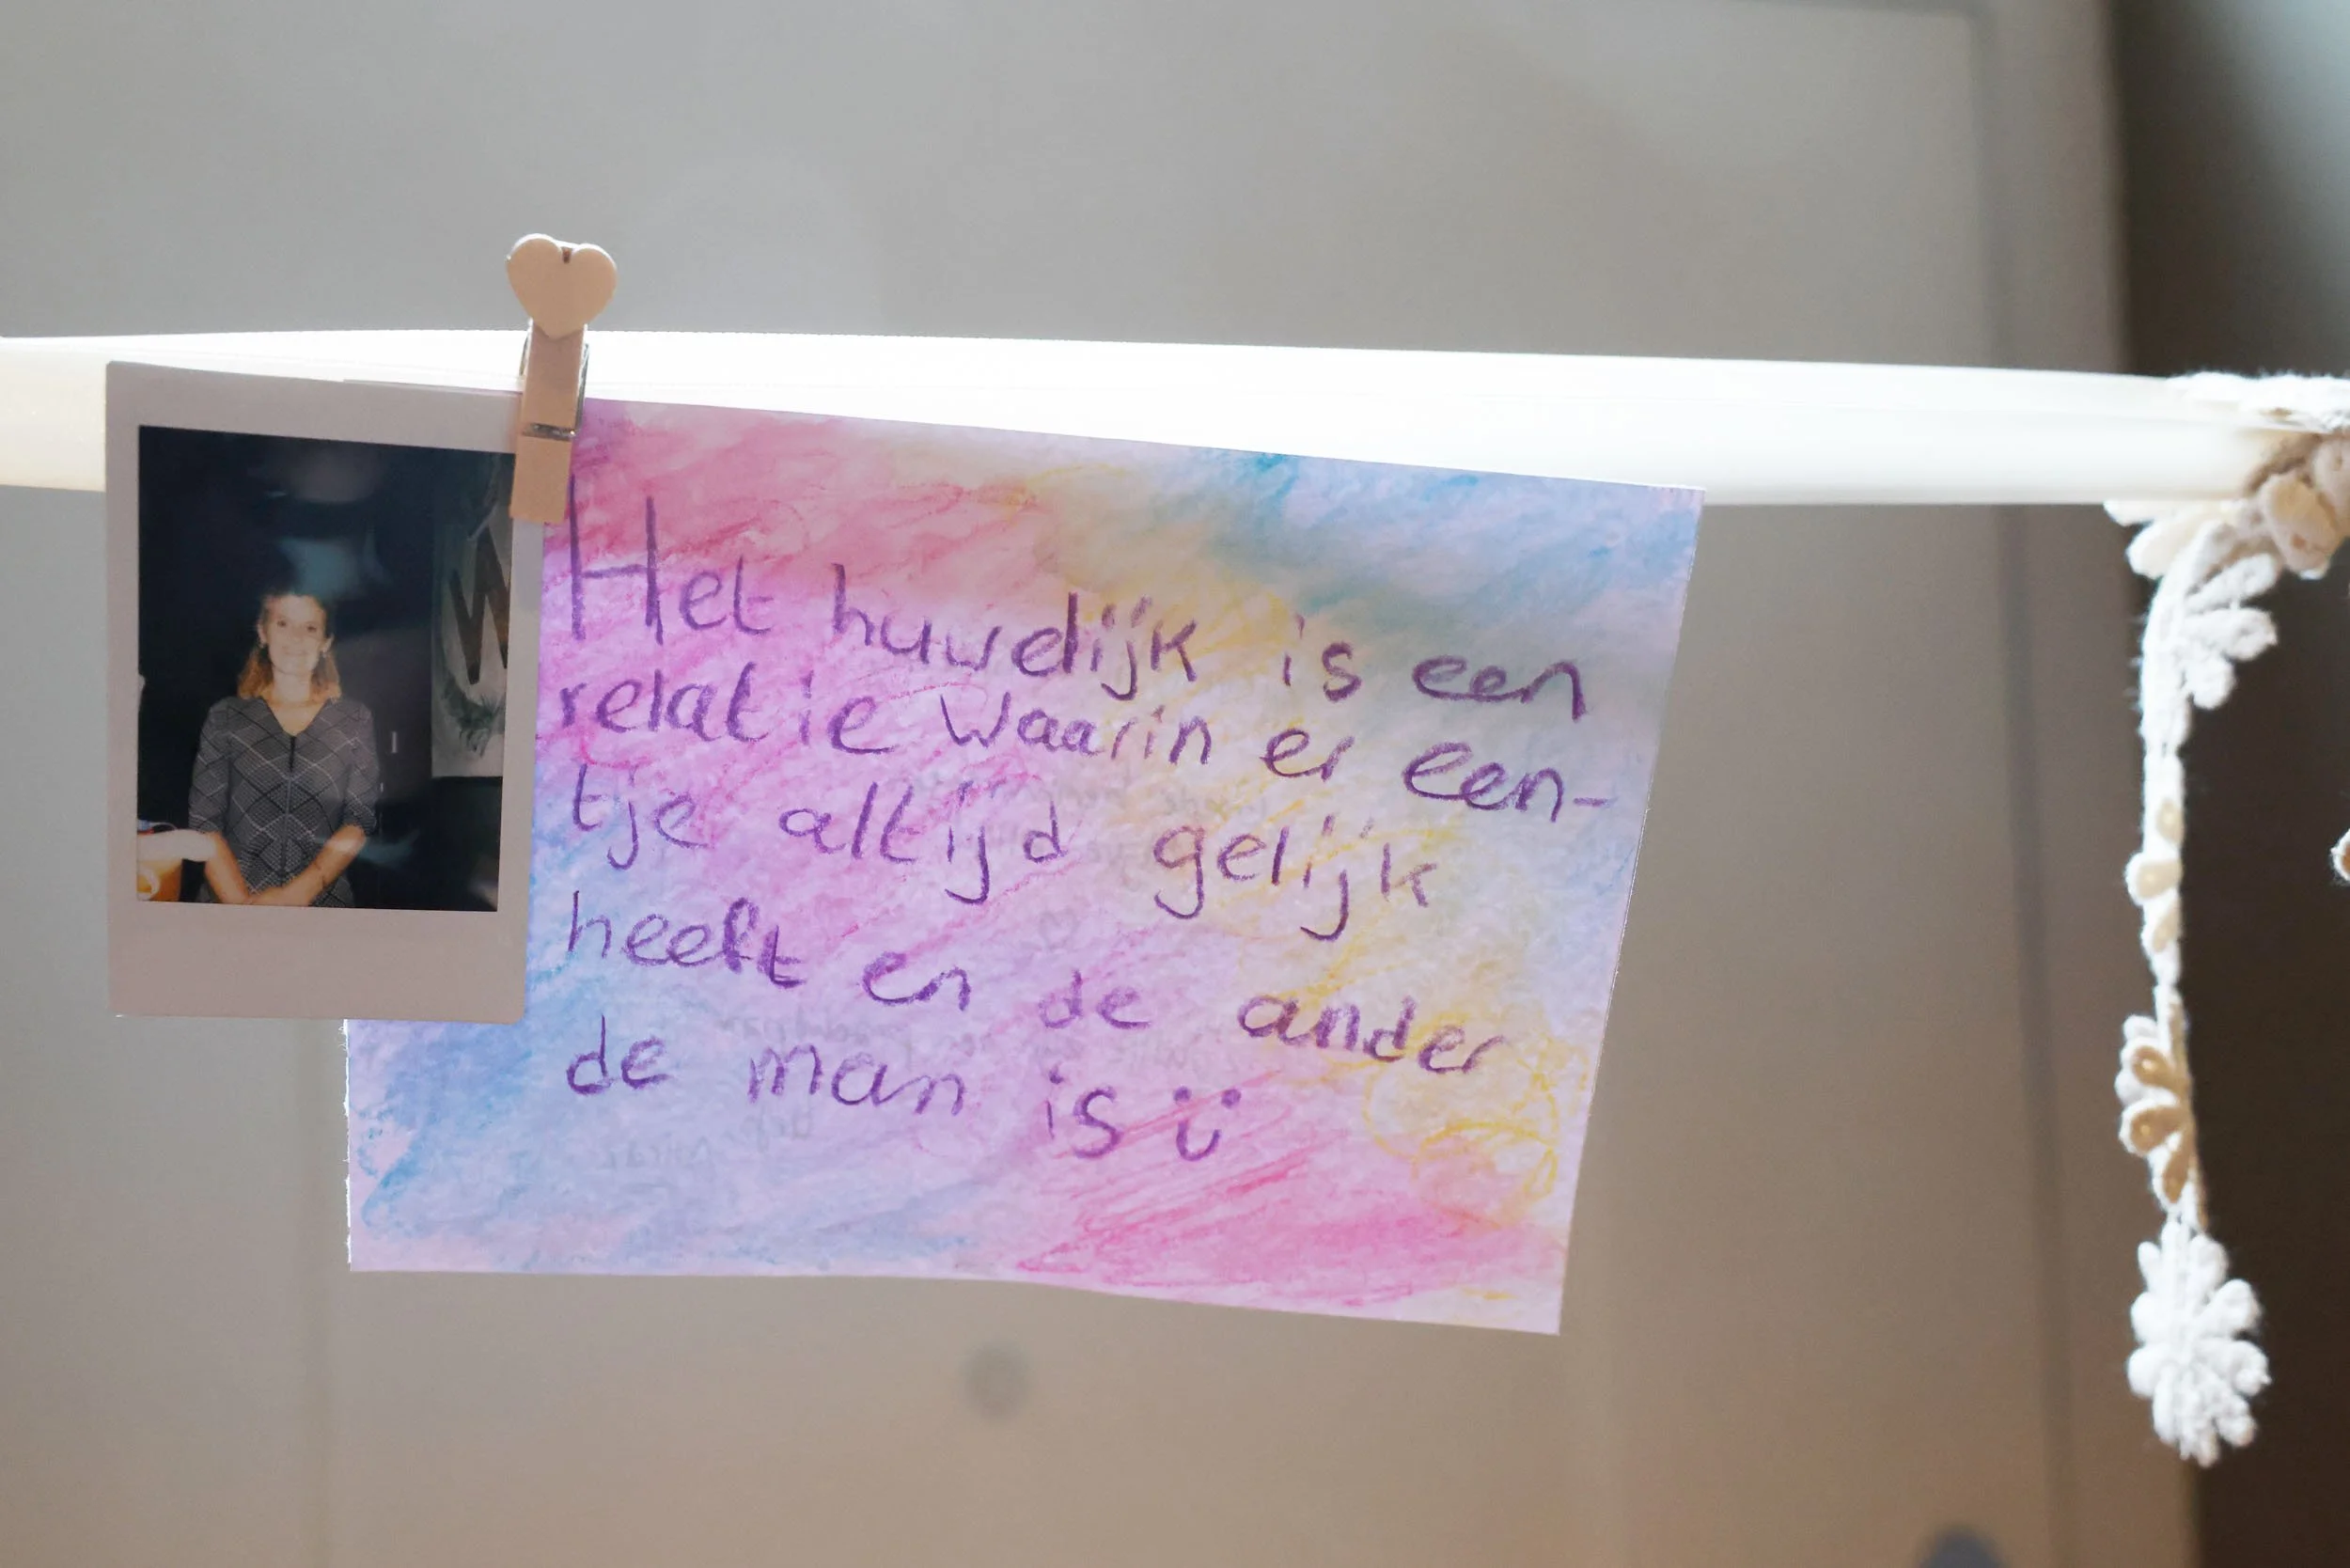 Het huwelijk is een
relatie waarin er een-
tje altijd gelijk
heeft en de ander
de man is ü